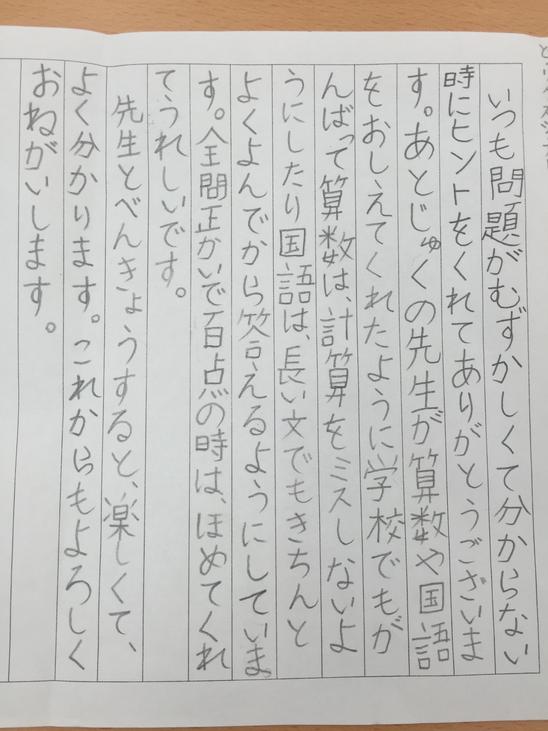 いつも問題がむずかしくて分からない
時にヒントをくれてありがとうございま
す。あとじゅくの先生が算数や国語
をおしえてくれたように学校でもが
んばって算数は、計算をミスしないよ
うにしたり国語は、長い文でもきちんと
よくよんでから答えるようにしていま
す。全問正かいで百点の時は、ほめてくれ
てうれしいです。
先生とべんきょうすると、楽しくて、
よく分かります。これからもよろしく
おねがいします。